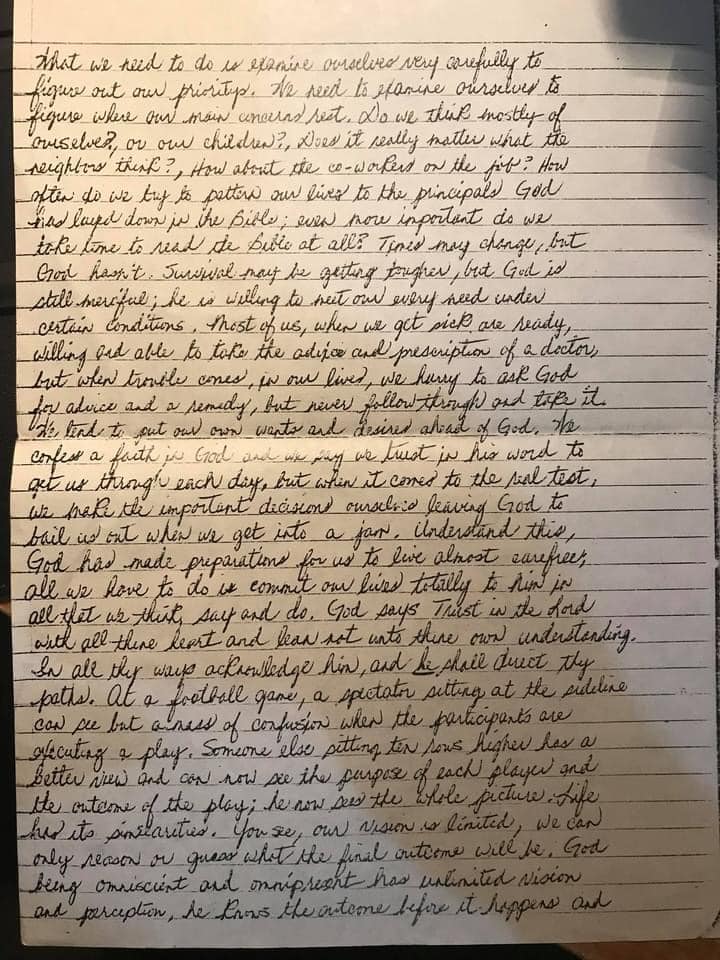 What we need to do is examine ourselves very carefully to
figure out our prioritys. We need to examine ourselves to
figure where our main concerns rest. Do we think mostly of
ourselves?, or our children?, Does it really matter what the
neighbors think?, How about the co-workers on the job? How
often do we try to pattern our lives to the principals God
has layed down in the Bible; even more important do we
take time to read the Bible at all? Times may change, but
God hasn't. Survival may be getting tougher, but God is
still merciful; he is willing to meet our every need under
certain conditions. Most of us, when we get sick are ready,
willing and able to take the advice and prescription of a doctor,
but when trouble comes, in our lives, we hurry to ask God
for advice and a remedy, but never follow through and take it.
We tend to put our own wants and desires ahead of God. We
confess a faith in God and we say we trust in his word to
get us through each day, but when it comes to the real test,
we make the important decisions ourselves leaving God to
bail us out when we get into a jam. Understand this,
God has made preparations for us to live almost carefree;
all we have to do is commit our lives totally to him in
all that we think, say and do. God says Trust in the Lord
with all thine heart and lean not unto thine own understanding.
In all thy ways acknowledge him, and he shall direct thy
paths. At a football game, a spectator sitting at the sideline
can see but a mass of confusion when the participants are
executing a play. Someone else sitting ten rows higher has a
better view and can now see the purpose of each player and
the outcome of the play; he now sees the whole picture. Life
has its similarities. You see, our vision is limited, we can
only reason or guess what the final outcome will be. God
being omniscient and omnipresent has unlimited vision
and perception, he knows the outcome before it happens and